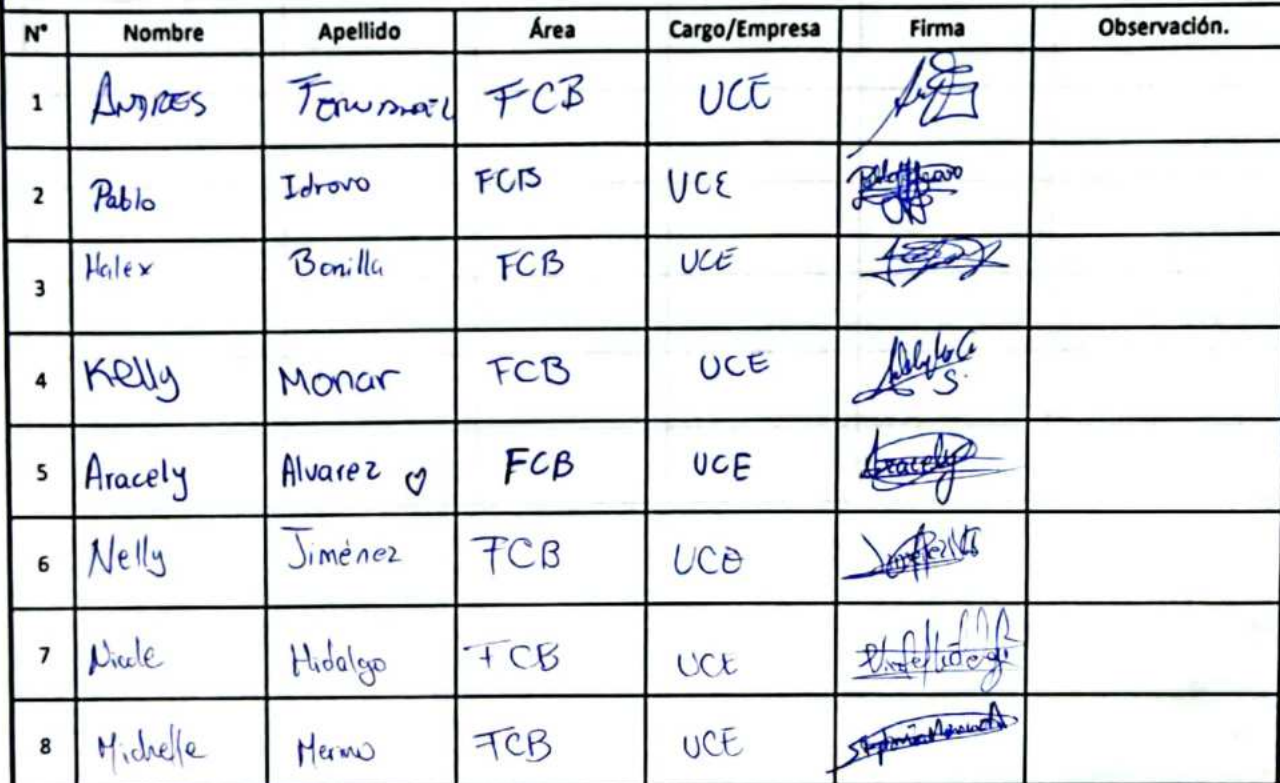 N° Nombre Apellido Área Cargo/Empresa Firma Observación.
1 ANDRES FCB UCE
2 Pablo Idrovo FCB UCE
3 Halex Bonilla FCB UCE
4 Kelly Monar FCB UCE
5 Aracely Alvarez FCB UCE Aracely
6 Nelly Jiménez FCB UCE
7 Nicole Hidalgo FCB UCE
8 Michelle FCB UCE